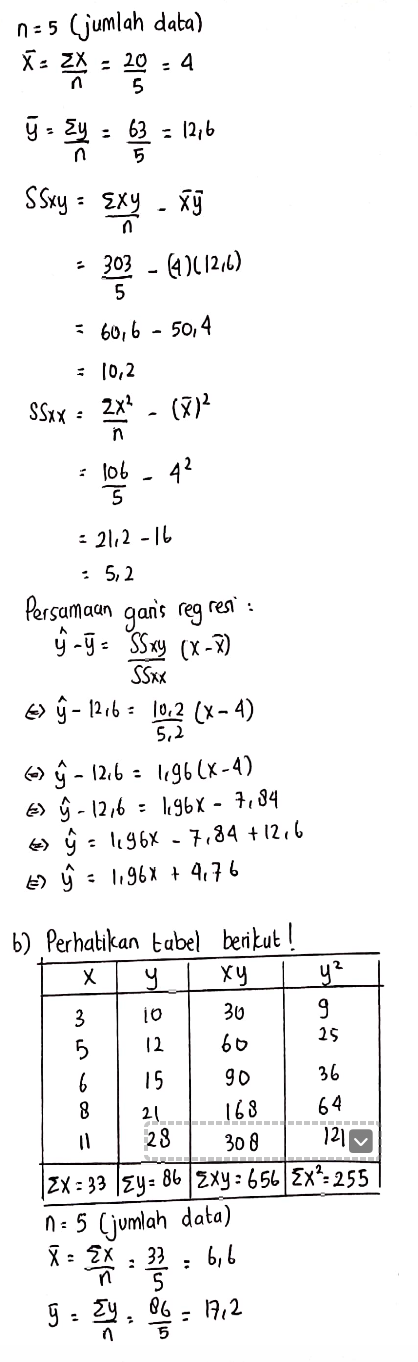 n = 5 (jumlah data)
x̄ = Σx/n = 20/5 = 4
ȳ = Σy/n = 63/5 = 12,6
SSxy = Σxy/n - x̄ȳ
= 303/5 - (4)(12,6)
= 60,6 - 50,4
= 10,2
SSxx = Σx²/n - (x̄)²
= 106/5 - 4²
= 21,2 - 16
= 5,2
Persamaan garis regresi :
ŷ - ȳ = SSxy/SSxx (x - x̄)
⇔ ŷ - 12,6 = 10,2/5,2 (x - 4)
⇔ ŷ - 12,6 = 1,96 (x - 4)
⇔ ŷ - 12,6 = 1,96x - 7,84
⇔ ŷ = 1,96x - 7,84 + 12,6
⇔ ŷ = 1,96x + 4,76
b) Perhatikan tabel berikut !
x y xy y²
3 10 30 9
5 12 60 25
6 15 90 36
8 21 168 64
11 28 308 121
Σx = 33 Σy = 86 Σxy = 656 Σx² = 255
n = 5 (jumlah data)
x̄ = Σx/n = 33/5 = 6,6
ȳ = Σy/n = 86/5 = 17,2